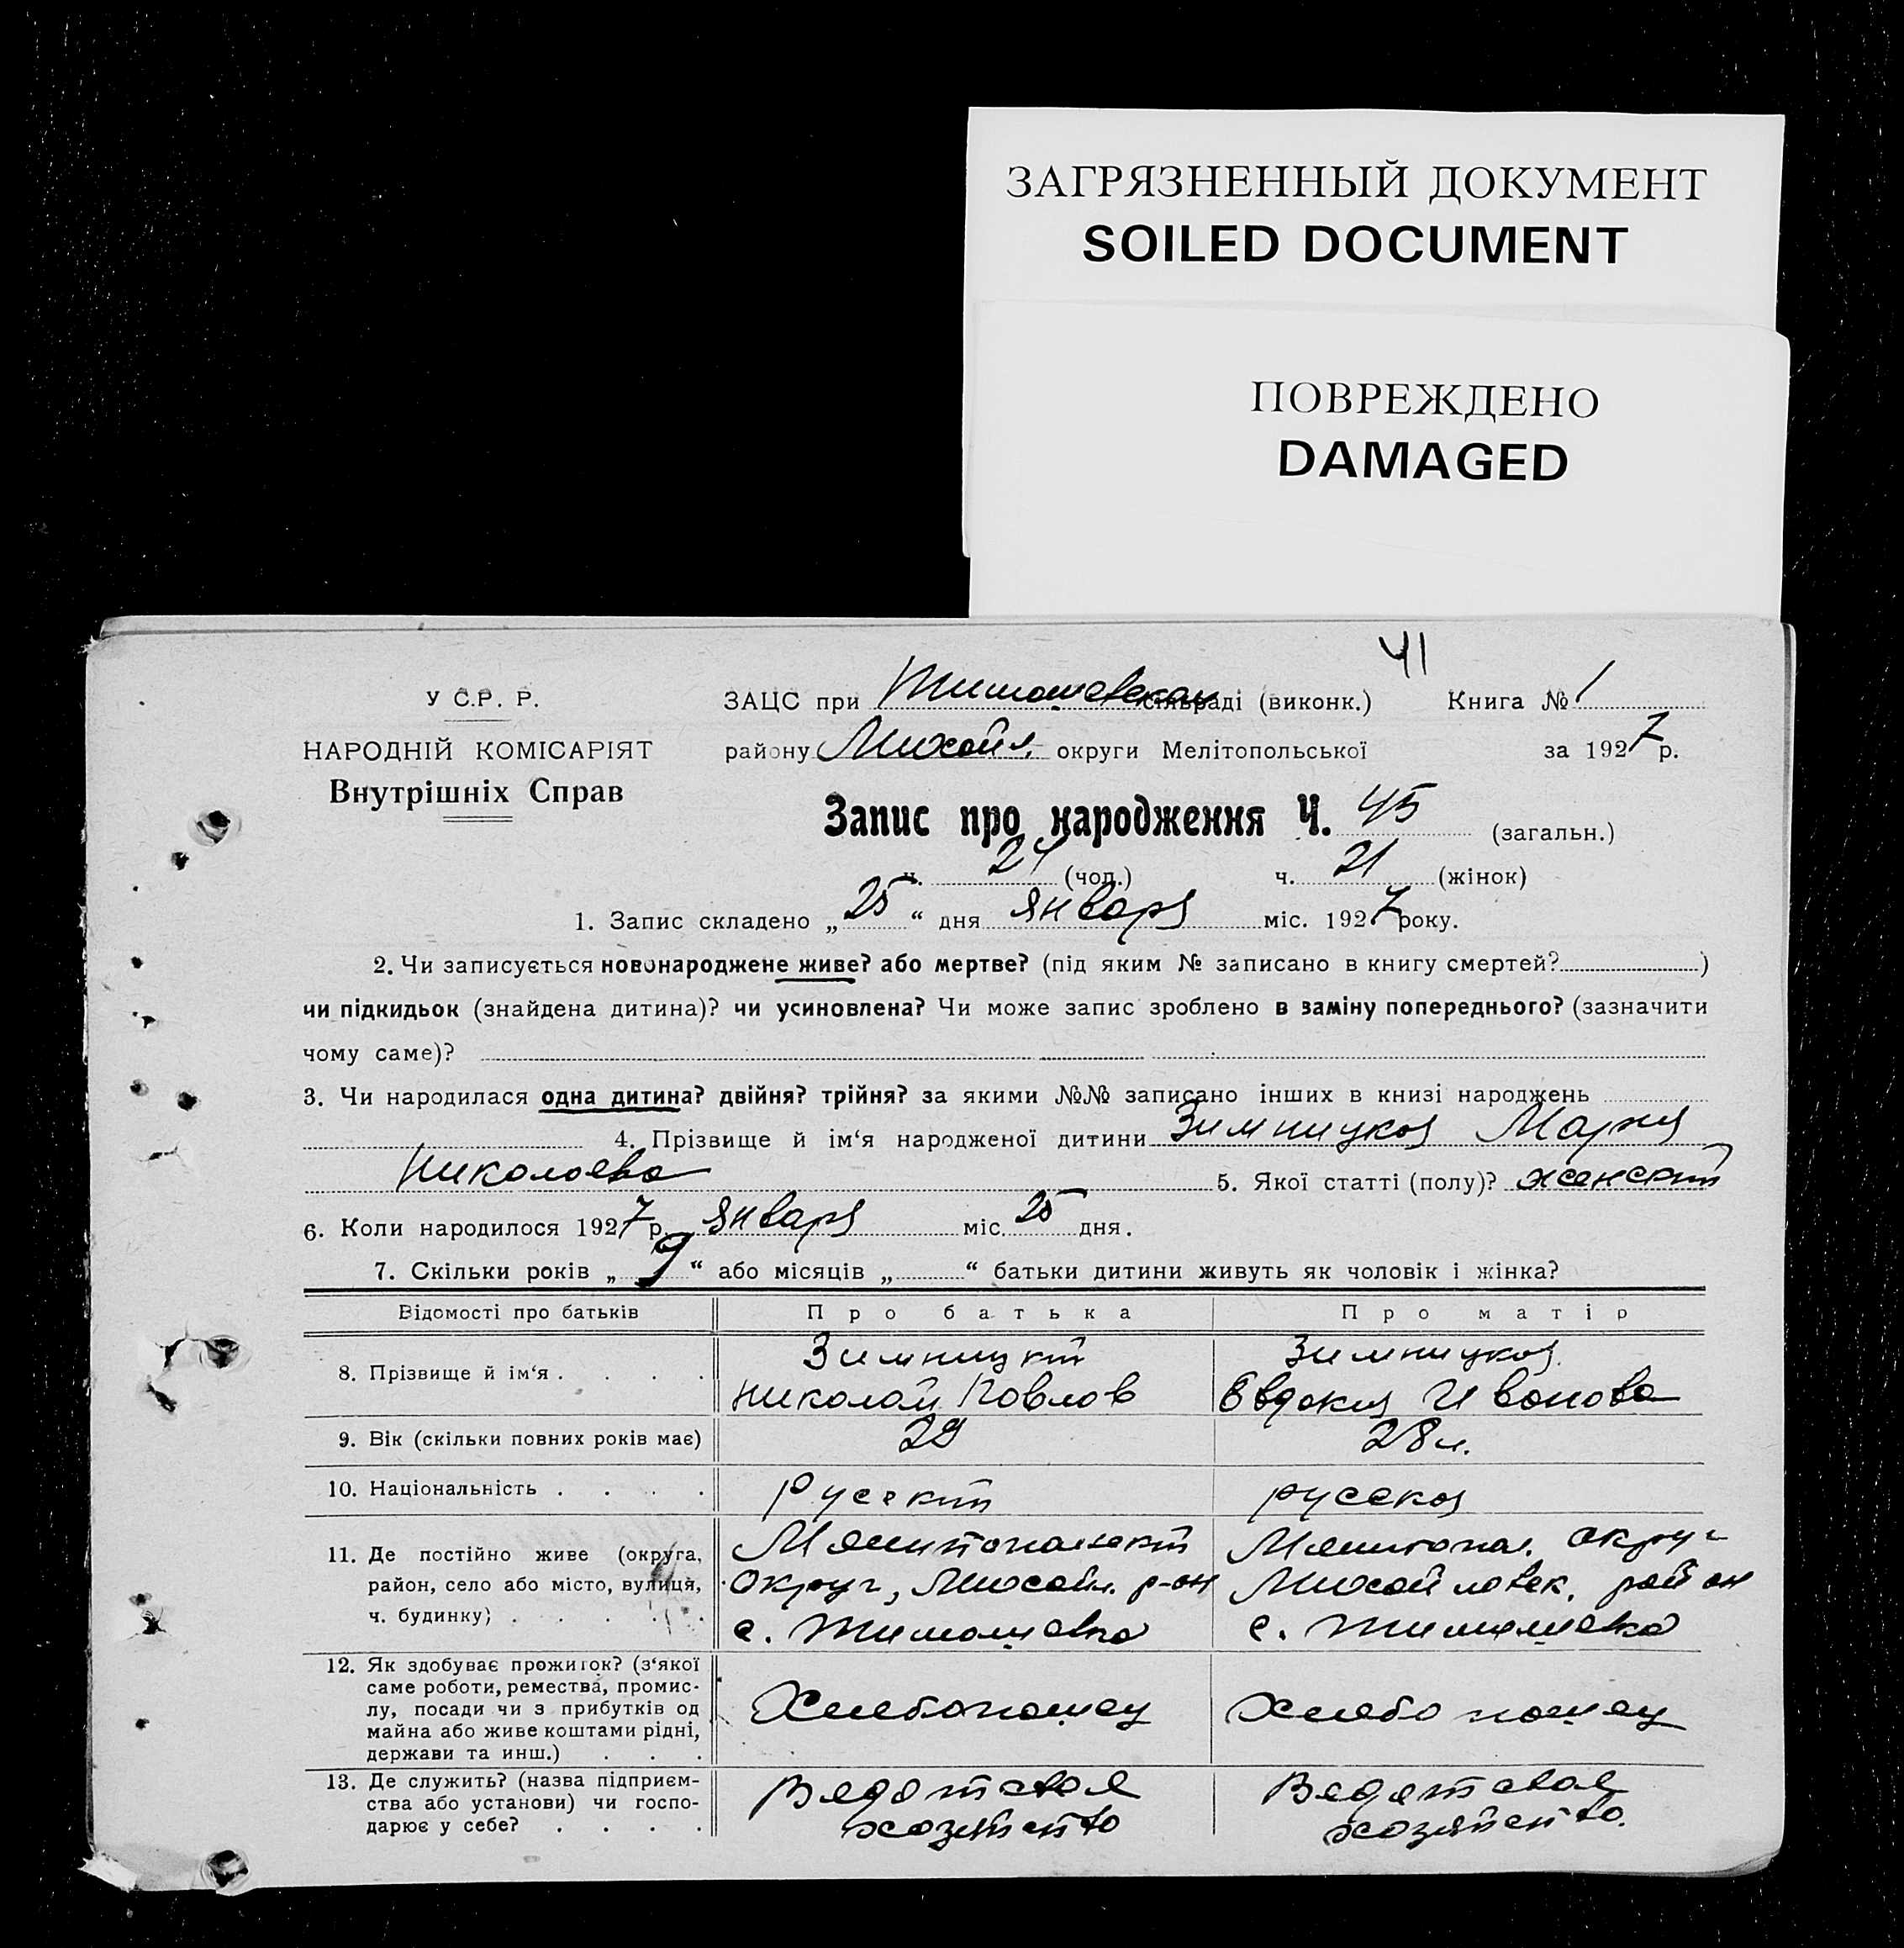 ЗАГРЯЗНЕННЫЙ ДОКУМЕНТ
SOILED DOCUMENT
ПОВРЕЖДЕНО
DAMAGED
41
У С.Р. Р.
НАРОДНІЙ КОМІСАРІЯТ
Внутрішніх Справ
ЗАЦС при Тимошевском сільраді (виконк.) Книга № 1
району Михайл. округи Мелітопольської за 1927 р.
Запис про народження Ч. 45 (загальн.)
ч. 24 (чол.) ч. 21 (жінок)
1. Запис складено „25“ дня января міс. 1927 року.
2. Чи записується новонароджене живе? або мертве? (під яким № записано в книгу смертей? )
чи підкидьок (знайдена дитина)? чи усиновлена? Чи може запис зроблено в заміну попереднього? (зазначити
чому саме)?
3. Чи народилася одна дитина? двійня? трійня? за якими №№ записано інших в книзі народжень
4. Прізвище й ім‘я народженої дитини Зимницкая Мария
Николаева 5. Якої статті (полу)? женский
6. Коли народилося 1927 р. января міс. 25 дня.
7. Скільки років „9“ або місяців „ “ батьки дитини живуть як чоловік і жінка?
Відомості про батьків Про батька Про матір
8. Прізвище й ім‘я . . . . Зимницкий Зимницкая
Николай Павлов Евдокия Иванова
9. Вік (скільки повних років має) 29 28 л.
10. Національність . . . . Русский русская
11. Де постійно живе (округа, Мелитопольский Мелитопол. округ
район, село або місто, вулиця, округ, Михайл. р-он Михайловск. район
ч. будинку) . . . . . с. Тимошевка с. Тимошевка
12. Як здобуває прожиток? (з‘якої
саме роботи, ремества, промис-
лу, посади чи з прибутків од Хлебопашец Хлебопашец
майна або живе коштами рідні,
держави та инш.) . . .
13. Де служить? (назва підприєм- Ведет свое Ведет свое
ства або установи) чи госпо- хозяйство хозяйство.
дарює у себе? . . . .